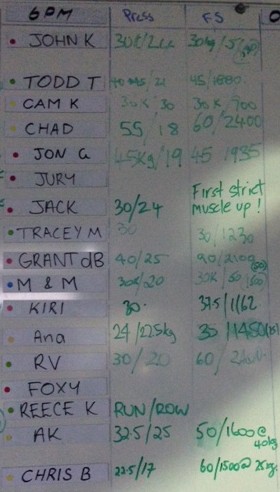 6PM Press FS
JOHN K 30k/
TODD T 45/1880
CAM K 30k/30 30k/900
CHAD 55/18 60/2400
JON G 45kg/19 45 1935
JURY
First strict
JACK 30/24 muscle up!
TRACEY M 30 30/1230
GRANT dB 40/25 90/2100
M & M 30k/20 30k/
KIRI 30 37.5/1162
Ana 24/22.5kg 35/1480
RV 30/20 60/
FOXY
REECE K RUN/ROW
AK 32.5/25 50/1600@
40kg
CHRIS B 22.5/17 60/1500@